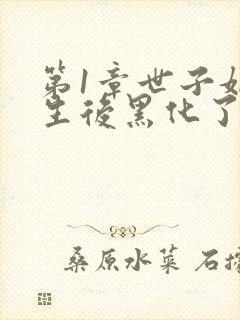 第1章世子
生後黑化了
桑原水菜 石